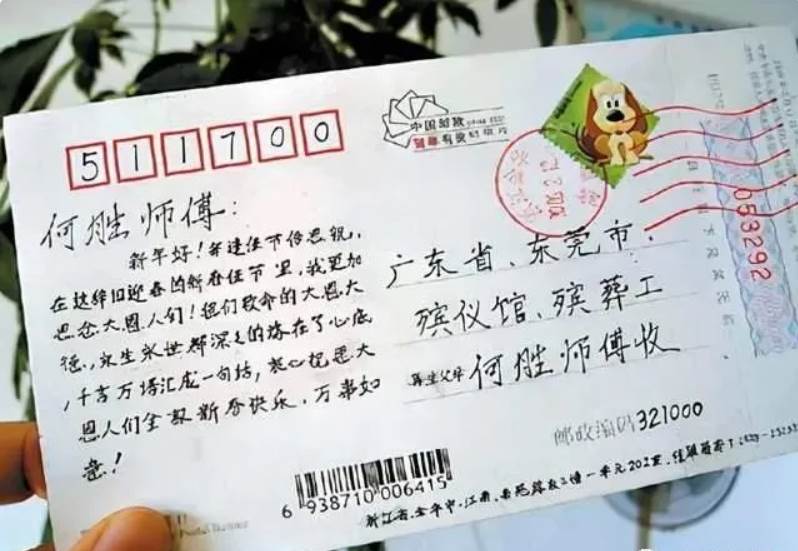 511700
中国邮政
贺年有奖
何胜师傅：
新年好！每逢佳节倍思親，
在这辞旧迎春的新春佳节里，我更加
思念大恩人们！您们救命的大恩大
德，永生永世都深深的
在了心底
，千言万语汇成一句话，衷心祝愿大
恩人们全家新春快乐，万事如
意！
广东省、东莞市、
殡仪馆、殡葬工
再生父母 何胜师傅收
邮政编码321000
053292
6 938710 006415
浙江省.金华市.江南.
一单元202室.